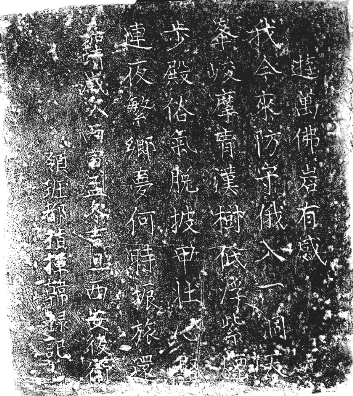 遊萬佛岩有感
我今來防守俄入一洞天
峯峻摩霄漢樹依浮紫
步殿俗氣脫披甲壯心
連夜繁鄉夢何時振旅還
歲次 孟冬吉旦西安後
領班都指揮 錄記